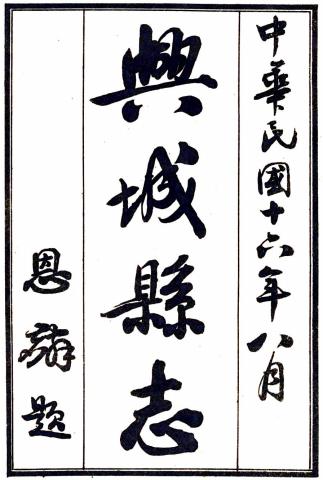 中華民國十六年八月
興城縣志
恩麟題